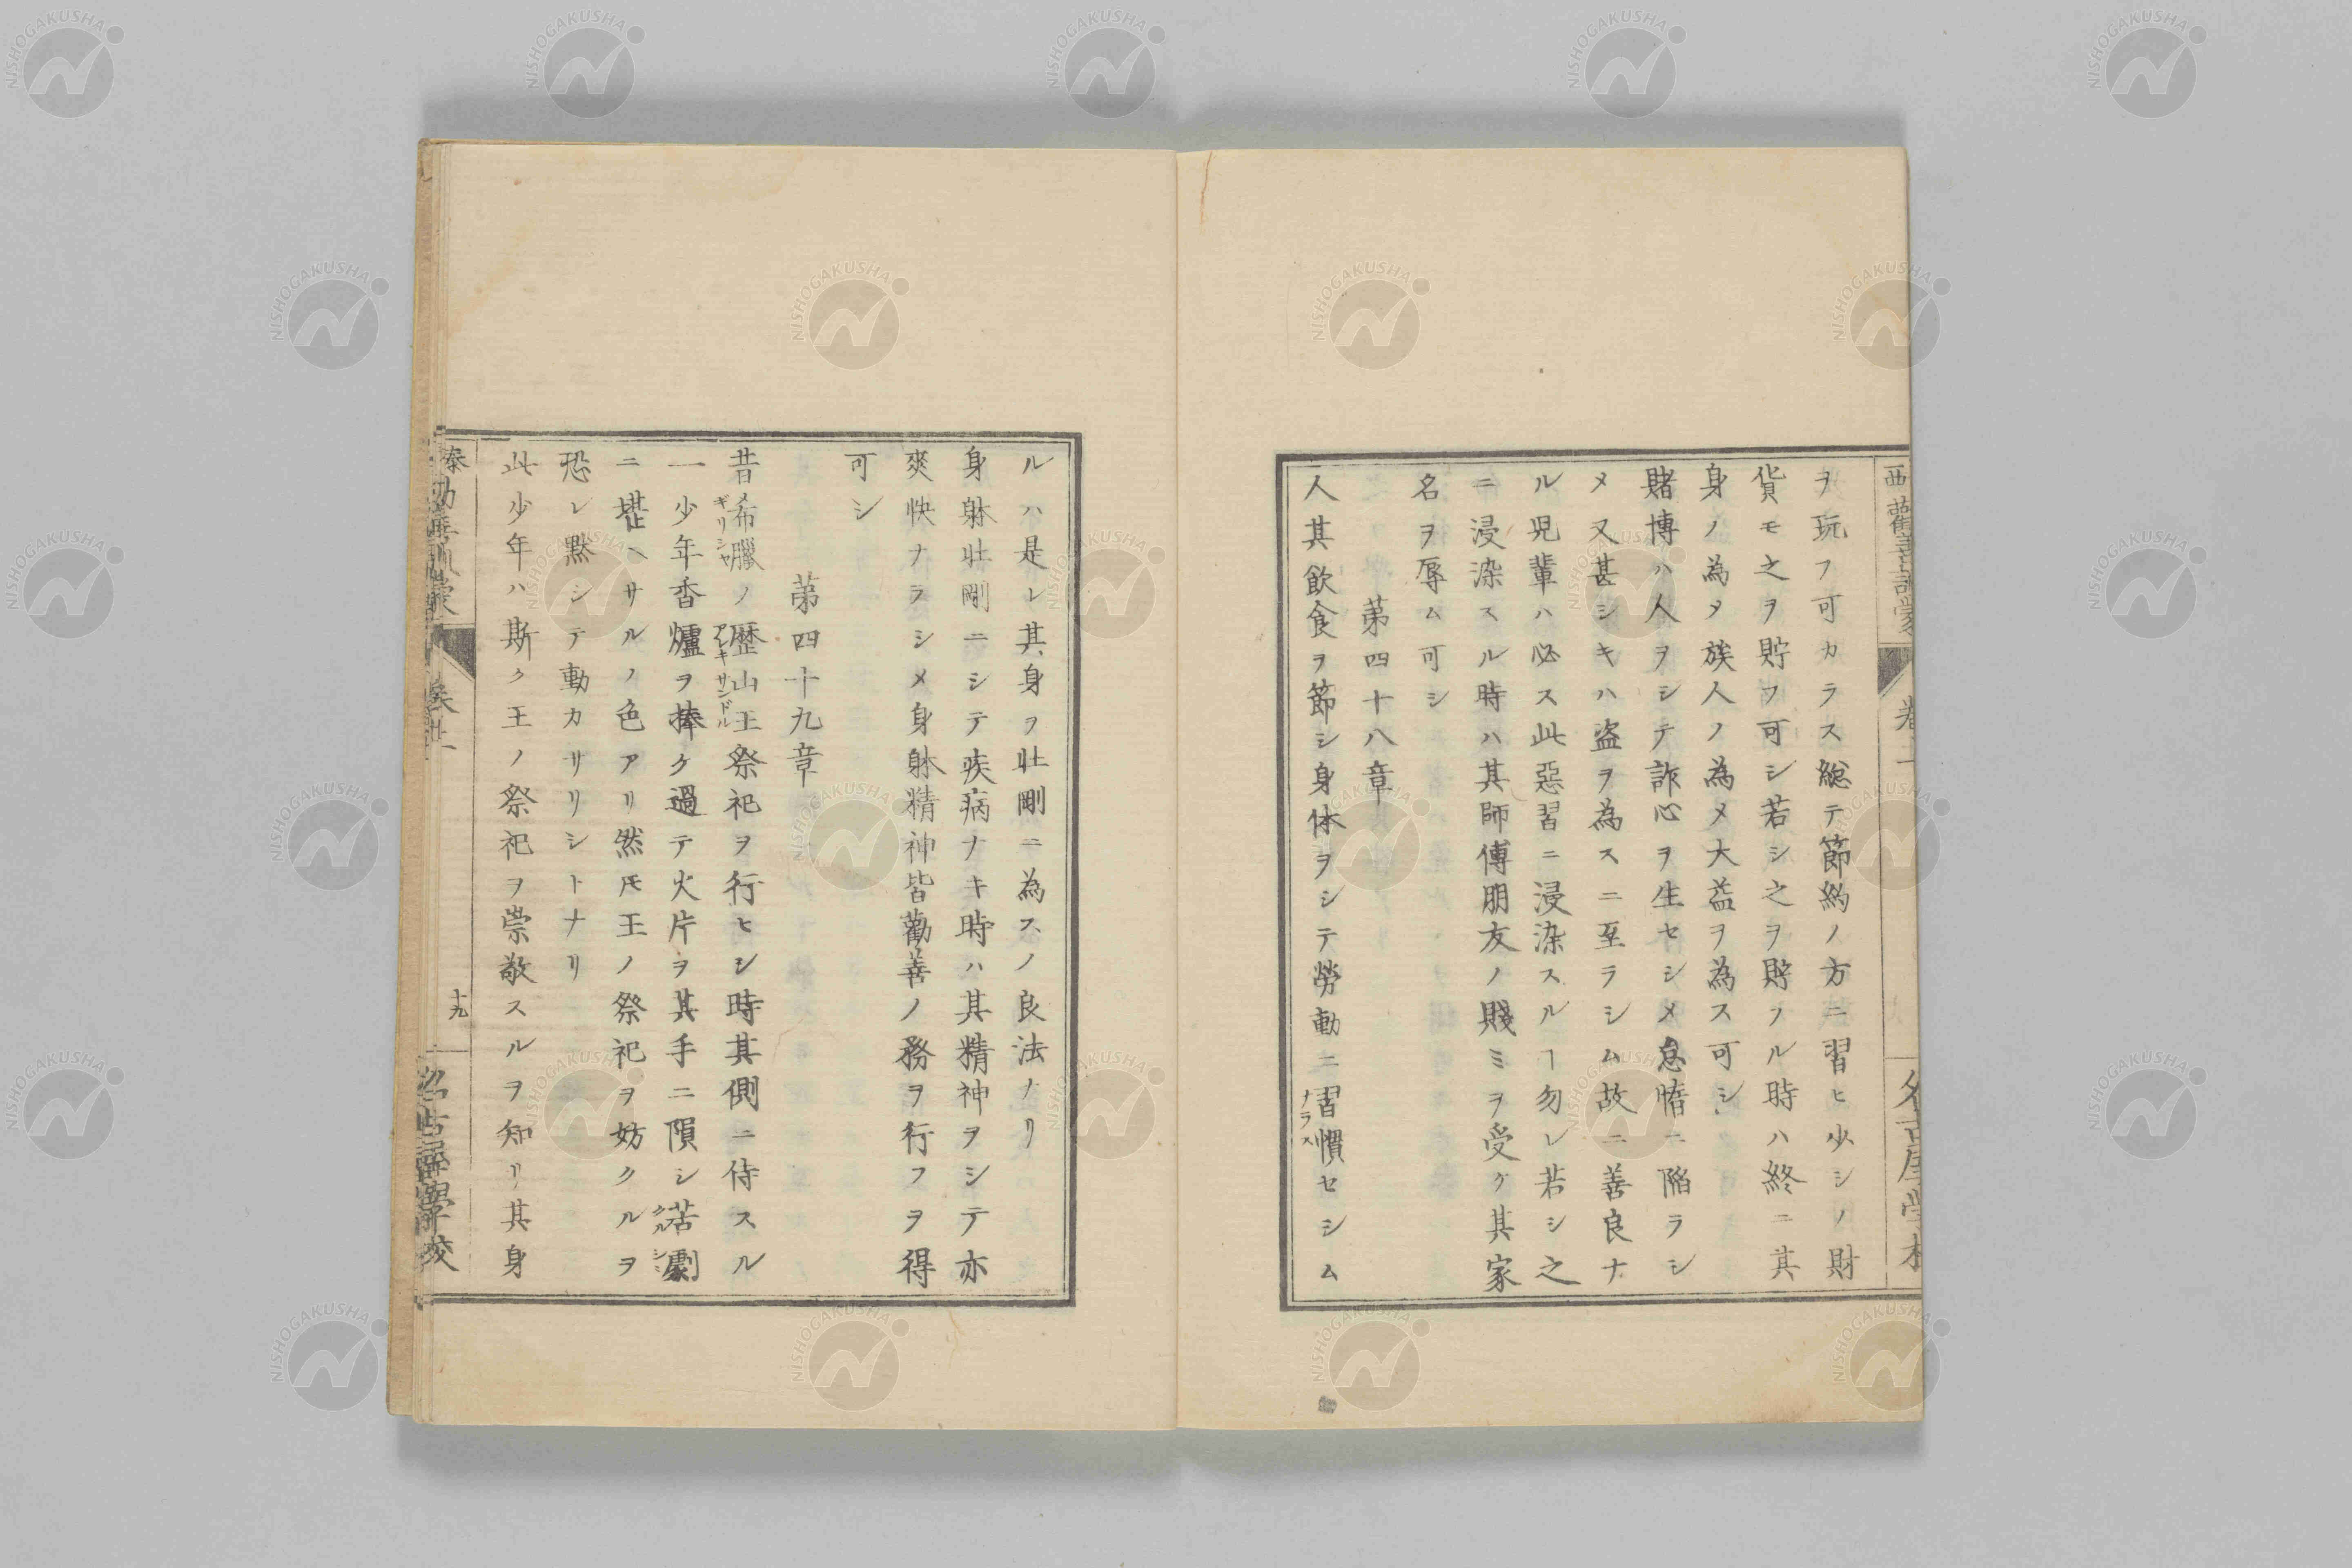 ヲ玩フ可カラス総テ節約ノ方ニ習ヒ少シノ財
貨モ之ヲ貯フ可シ若シ之ヲ貯フル時ハ終ニ其
身ノ為メ族人ノ為メ大益ヲ為ス可シ
賭博ハ人ヲシテ詐心ヲ生セシメ怠惰ニ陥ラシ
メ又甚シキハ盗ヲ為スニ至ラシム故ニ善良ナ
ル児輩ハ必ス此惡習ニ浸染スルヿ勿レ若シ之
ニ浸染スル時ハ其師傅朋友ノ賤ミヲ受ケ其家
名ヲ辱ム可シ
第四十八章
人其飲食ヲ節シ身体ヲシテ勞動ニ習慣セシム
ナラス
ルハ是レ其身ヲ壮剛ニ為スノ良法ナリ
身躰壮剛ニシテ疾病ナキ時ハ其精神ヲシテ亦
爽快ナラシメ身躰精神皆勸善ノ務ヲ行フヲ得
可シ
第四十九章
昔希臘ノ歴山王祭祀ヲ行ヒシ時其側ニ侍スル
ギリシヤ アレキサンドル
一少年香爐ヲ捧ケ過テ火片ヲ其手ニ隕シ苦劇
クルシミ
ニ堪ヘサルノ色アリ然𪜈王ノ祭祀ヲ妨クルヲ
恐レ黙シテ動カサリシトナリ
此少年ハ斯ク王ノ祭祀ヲ崇敬スルヲ知リ其身
十九
NISHOGAKUSHA